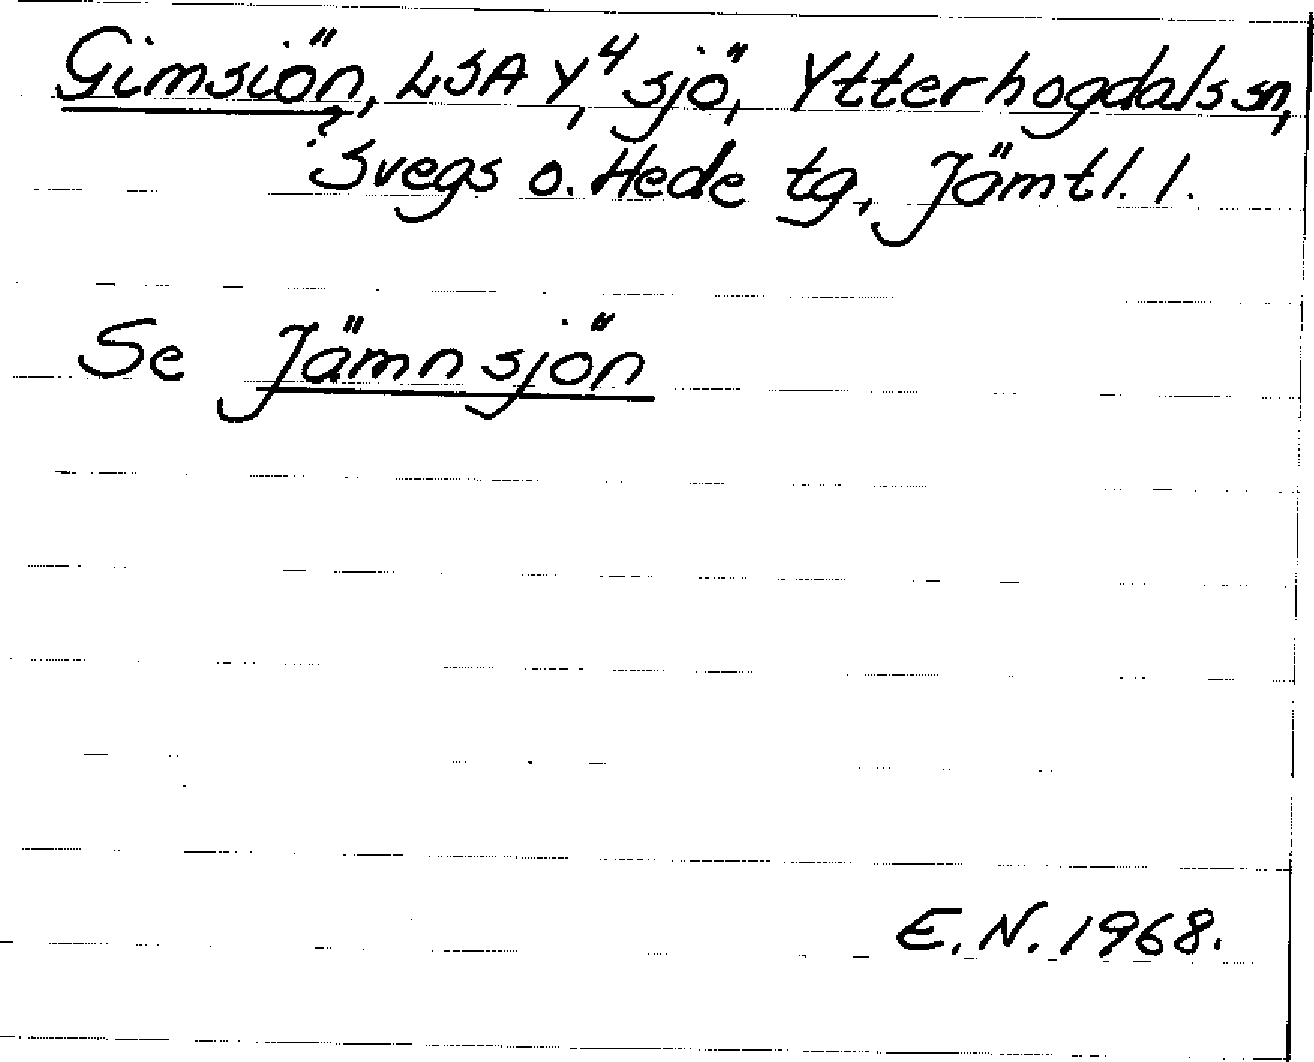 Gimsiön, LSA Y,⁴ sjö, Ytterhogdals sn,
? Svegs o. Hede tg, Jämtl. l.
Se Jämnsjön
E.N. 1968.